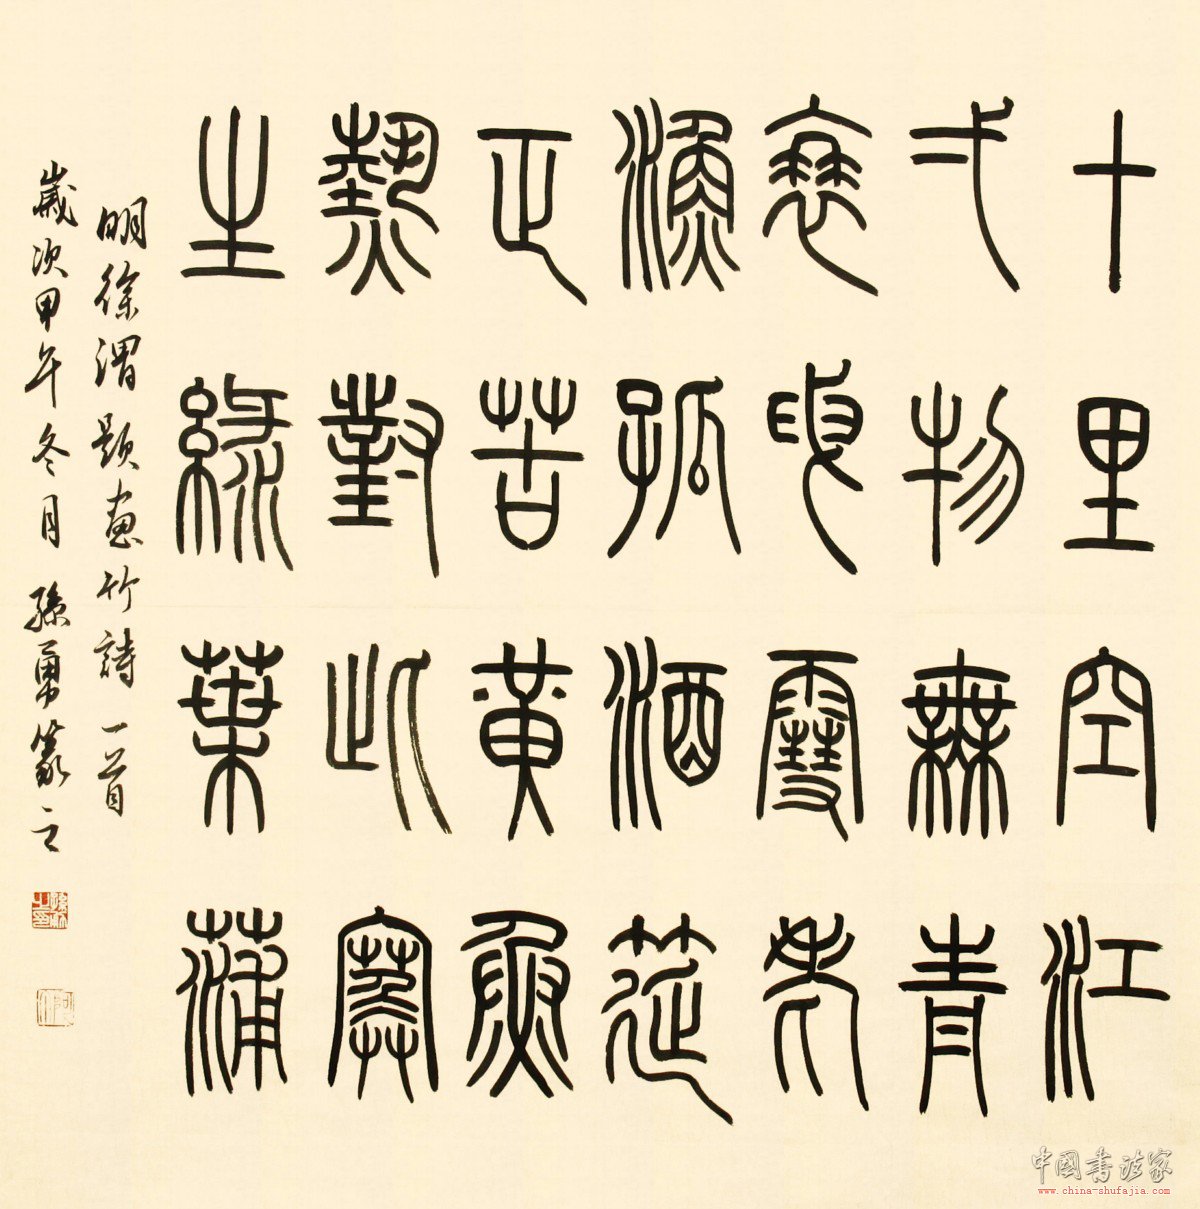 十里空江
弌物無青
衰曳雪老
漁孤酒筵
正苦黃魚
熱對此寒
生綠葉蒲
明徐渭題畫竹詩一首
歲次甲午冬月孫勇篆之
中国书法家
www.china-shufajia.com